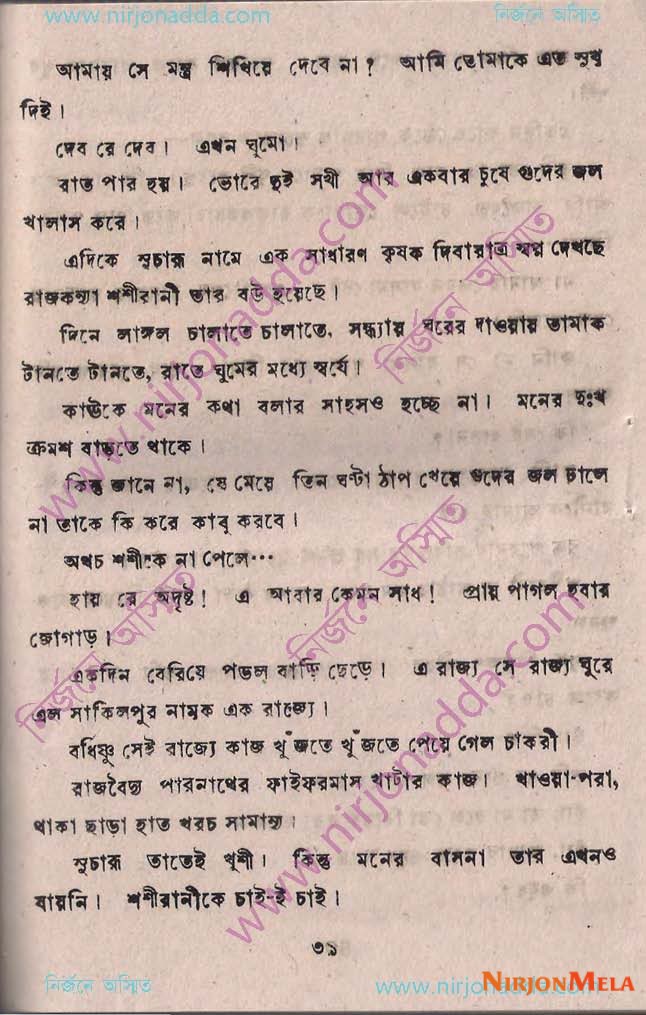 www.nirjonadda.com নির্জনে অস্মিত
আমায় সে মন্ত্র শিখিয়ে দেবে না? আমি তোমাকে এত সুখ
দিই।
দেব রে দেব। এখন ঘুমো।
রাত পার হয়। ভোরে দুই সখী আর একবার চুষে গুদের জল
খালাস করে।
এদিকে সুচারু নামে এক সাধারণ কৃষক দিবারাত্র স্বপ্ন দেখছে
রাজকন্যা শশীরানী তার বউ হয়েছে।
দিনে লাঙ্গল চালাতে চালাতে, সন্ধ্যায় ঘরের দাওয়ায় তামাক
টানতে টানতে, রাতে ঘুমের মধ্যে স্বর্যে।
কাউকে মনের কথা বলার সাহসও হচ্ছে না। মনের দুঃখ
ক্রমশ বাড়তে থাকে।
কিন্তু জানে না, যে মেয়ে তিন ঘণ্টা ঠাপ খেয়ে গুদের জল ঢালে
না তাকে কি করে কাবু করবে।
অথচ শশীকে না পেলে···
হায় রে অদৃষ্ট! এ আবার কেমন সাধ! প্রায় পাগল হবার
জোগাড়।
একদিন বেরিয়ে পড়ল বাড়ি ছেড়ে। এ রাজ্য সে রাজ্য ঘুরে
এল সাকিলপুর নামক এক রাজ্যে।
বর্ধিষ্ণু সেই রাজ্যে কাজ খুঁজতে খুঁজতে পেয়ে গেল চাকরী।
রাজবৈদ্য পারনাথের ফাইফরমাস খাটার কাজ। খাওয়া-পরা,
থাকা ছাড়া হাত খরচ সামান্য।
সুচারু তাতেই খুশী। কিন্তু মনের বাসনা তার এখনও
যায়নি। শশীরানীকে চাই-ই চাই।
৩৯
নির্জনে অস্মিত www.nirjonadda.com NIRJONMELA
www.nirjonadda.com নির্জনে অস্মিত
নির্জনে অস্মিত নির্জনে অস্মিত
www.nirjonadda.com